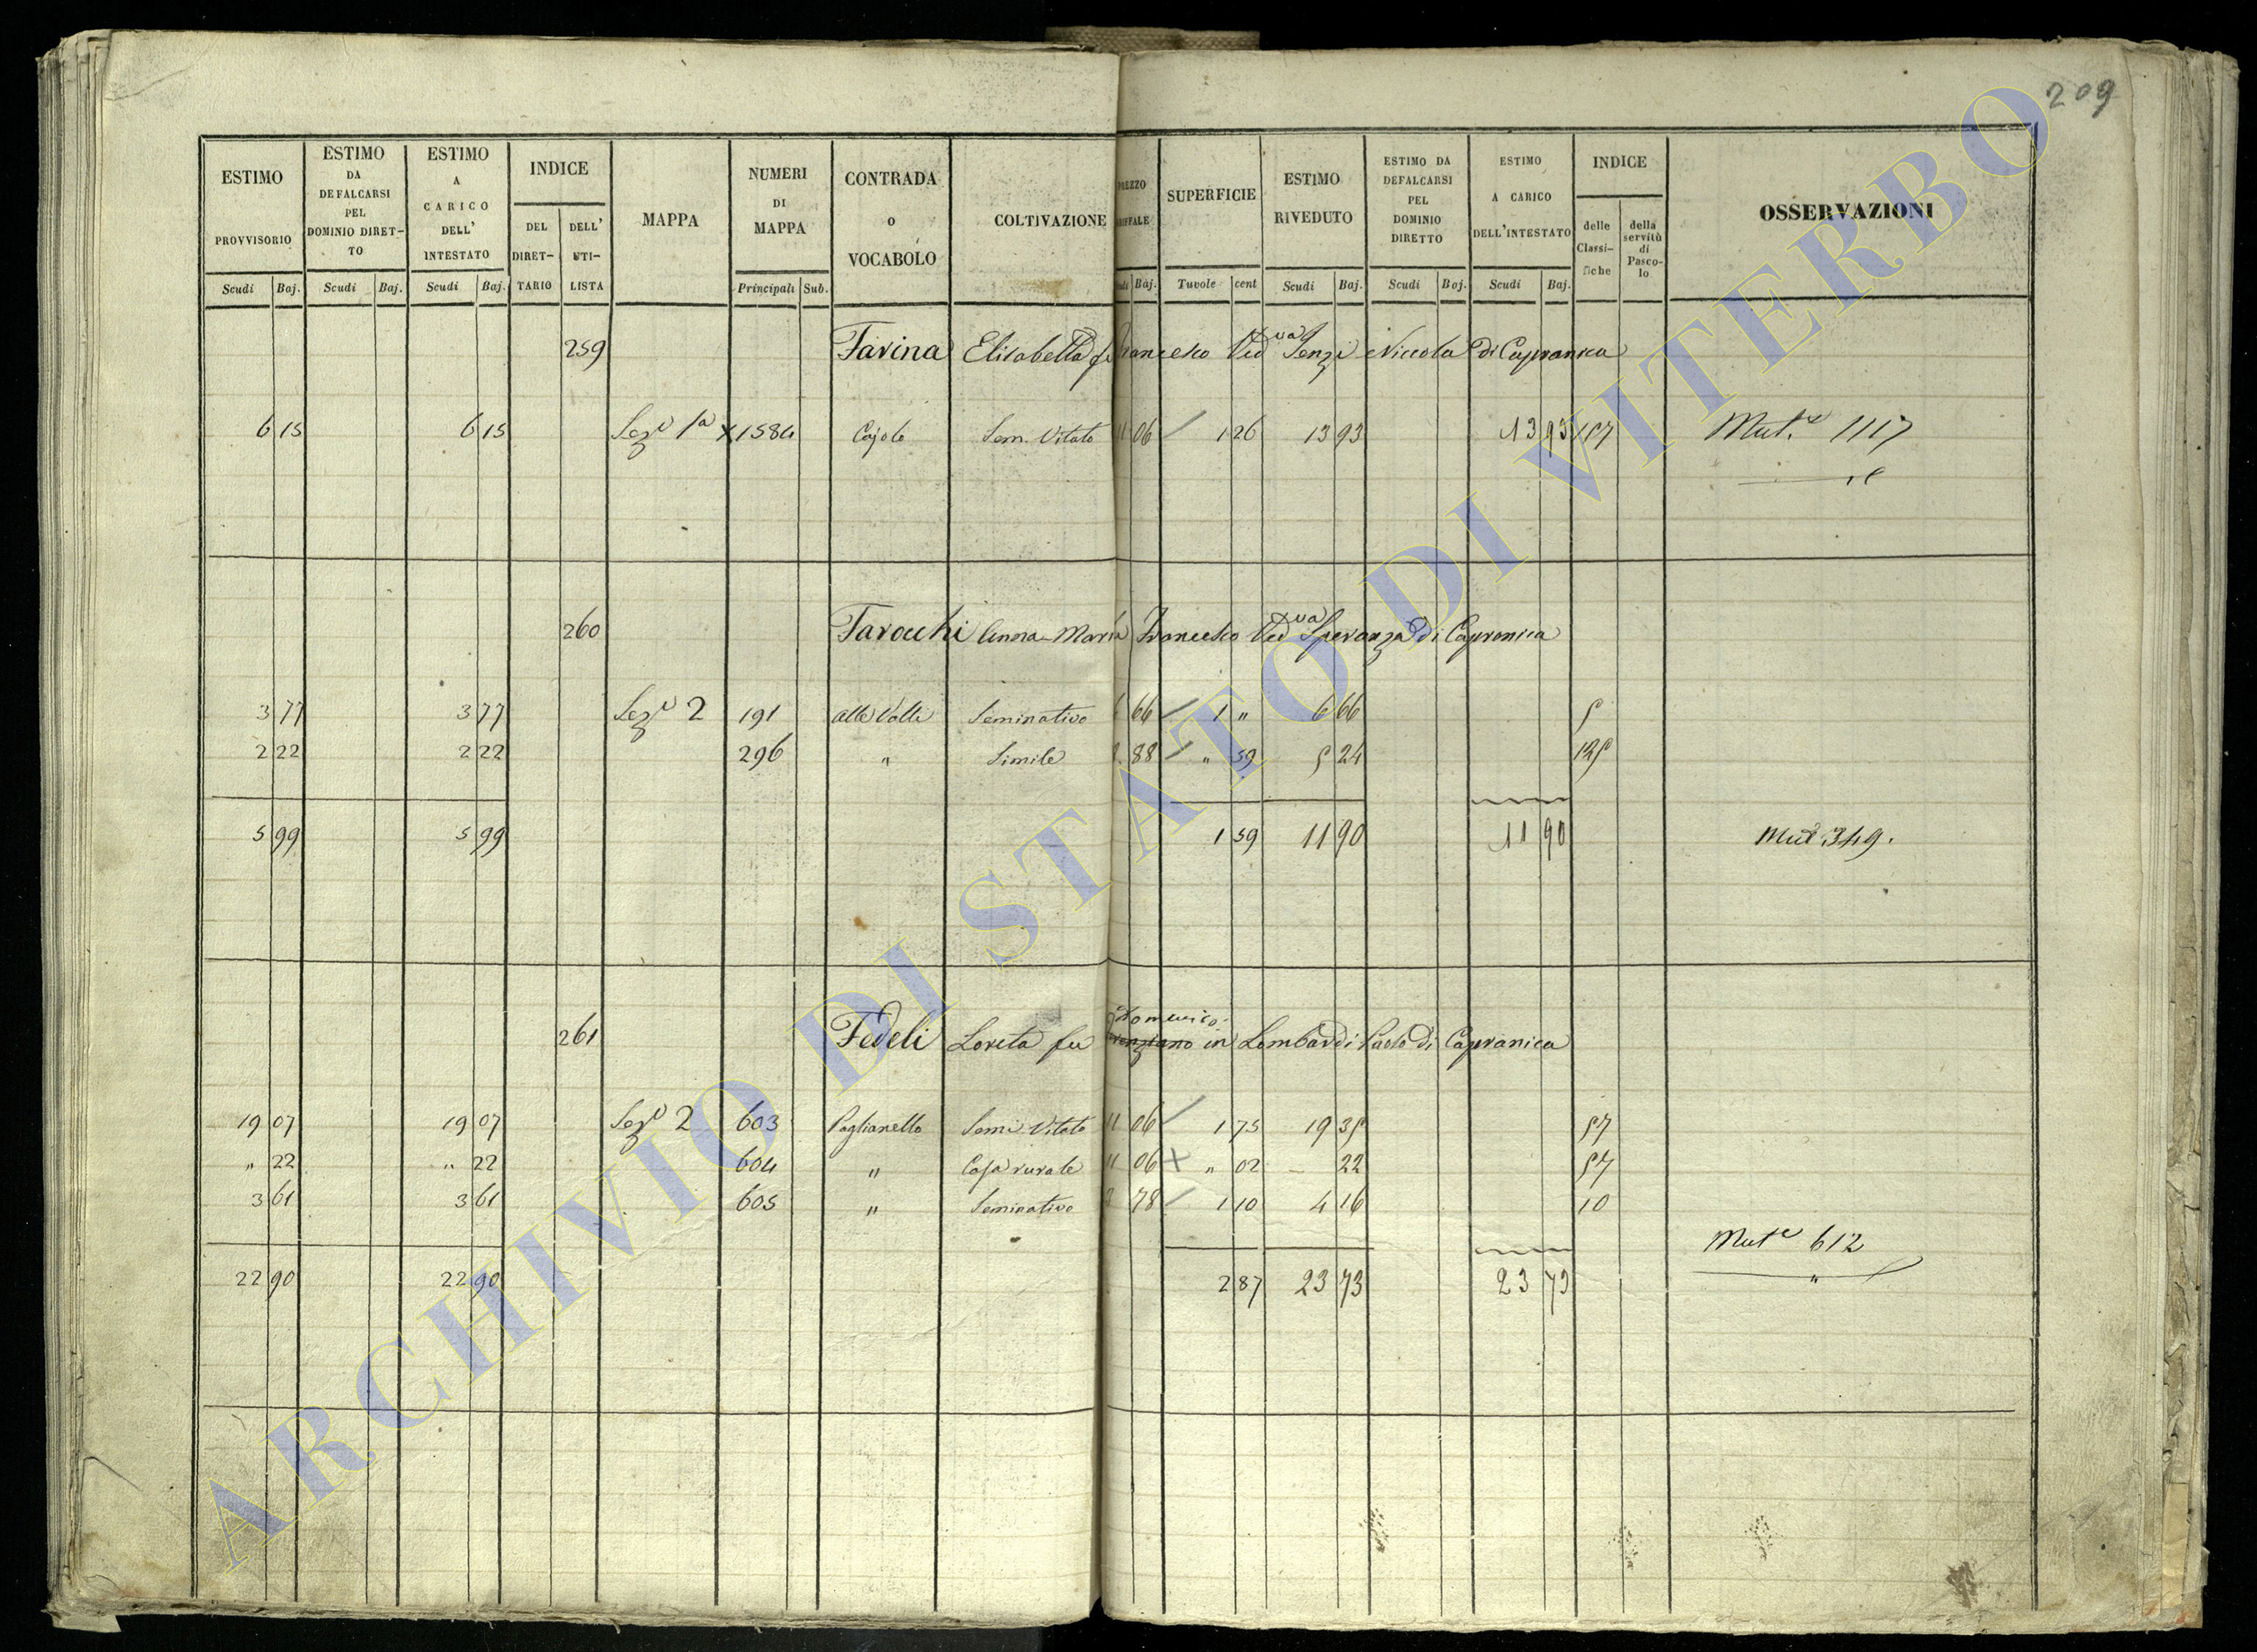 209
ESTIMO PROVVISORIO Scudi Baj. ESTIMO DA DEFALCARSI PEL DOMINIO DIRETTO Scudi Baj. ESTIMO A CARICO DELL' INTESTATO Scudi Baj. INDICE DEL DIRETTARIO DELL' UTILISTA MAPPA NUMERI DI MAPPA Principali Sub. CONTRADA o VOCABOLO COLTIVAZIONE Baj. SUPERFICIE Tavole cent ESTIMO RIVEDUTO Scudi Baj. ESTIMO DA DEFALCARSI PEL DOMINIO DIRETTO Scudi Baj. ESTIMO A CARICO DELL'INTESTATO Scudi Baj. INDICE delle Classifiche della servitù di Pascolo OSSERVAZIONI
259 Farina Elisabetta fu Francesco Ved va Senzi Niccola di Capranica
6 15 6 15 Sez.e 1a x 1584 Cajolo Sem. Vitato 11 06 1 26 13 93 13 93 Mut.e 1117
260 Farocchi Anna Maria Francesco Ved va Speranza di Capranica
3 77 3 77 Sez.e 2 191 alle Valli Seminativo 6 66 1 " 6 66 5
2 22 2 22 296 " Simile 8 88 " 59 5 24 125
5 99 5 99 1 59 11 90 11 90 Mut 349.
261 Fedeli Loreta fu Domenico in Lombardi Paolo di Capranica
19 07 19 07 Sez.e 2 603 Paglianello Semi Vitato 11 06 1 75 19 35 57
" 22 " 22 604 " Casa rurale 11 06 x " 02 22 57
3 61 3 61 605 " Seminativo 3 78 1 10 4 16 10
Mut.e 612
22 90 22 90 2 87 23 73 23 73
ARCHIVIO DI STATO DI VITERBO